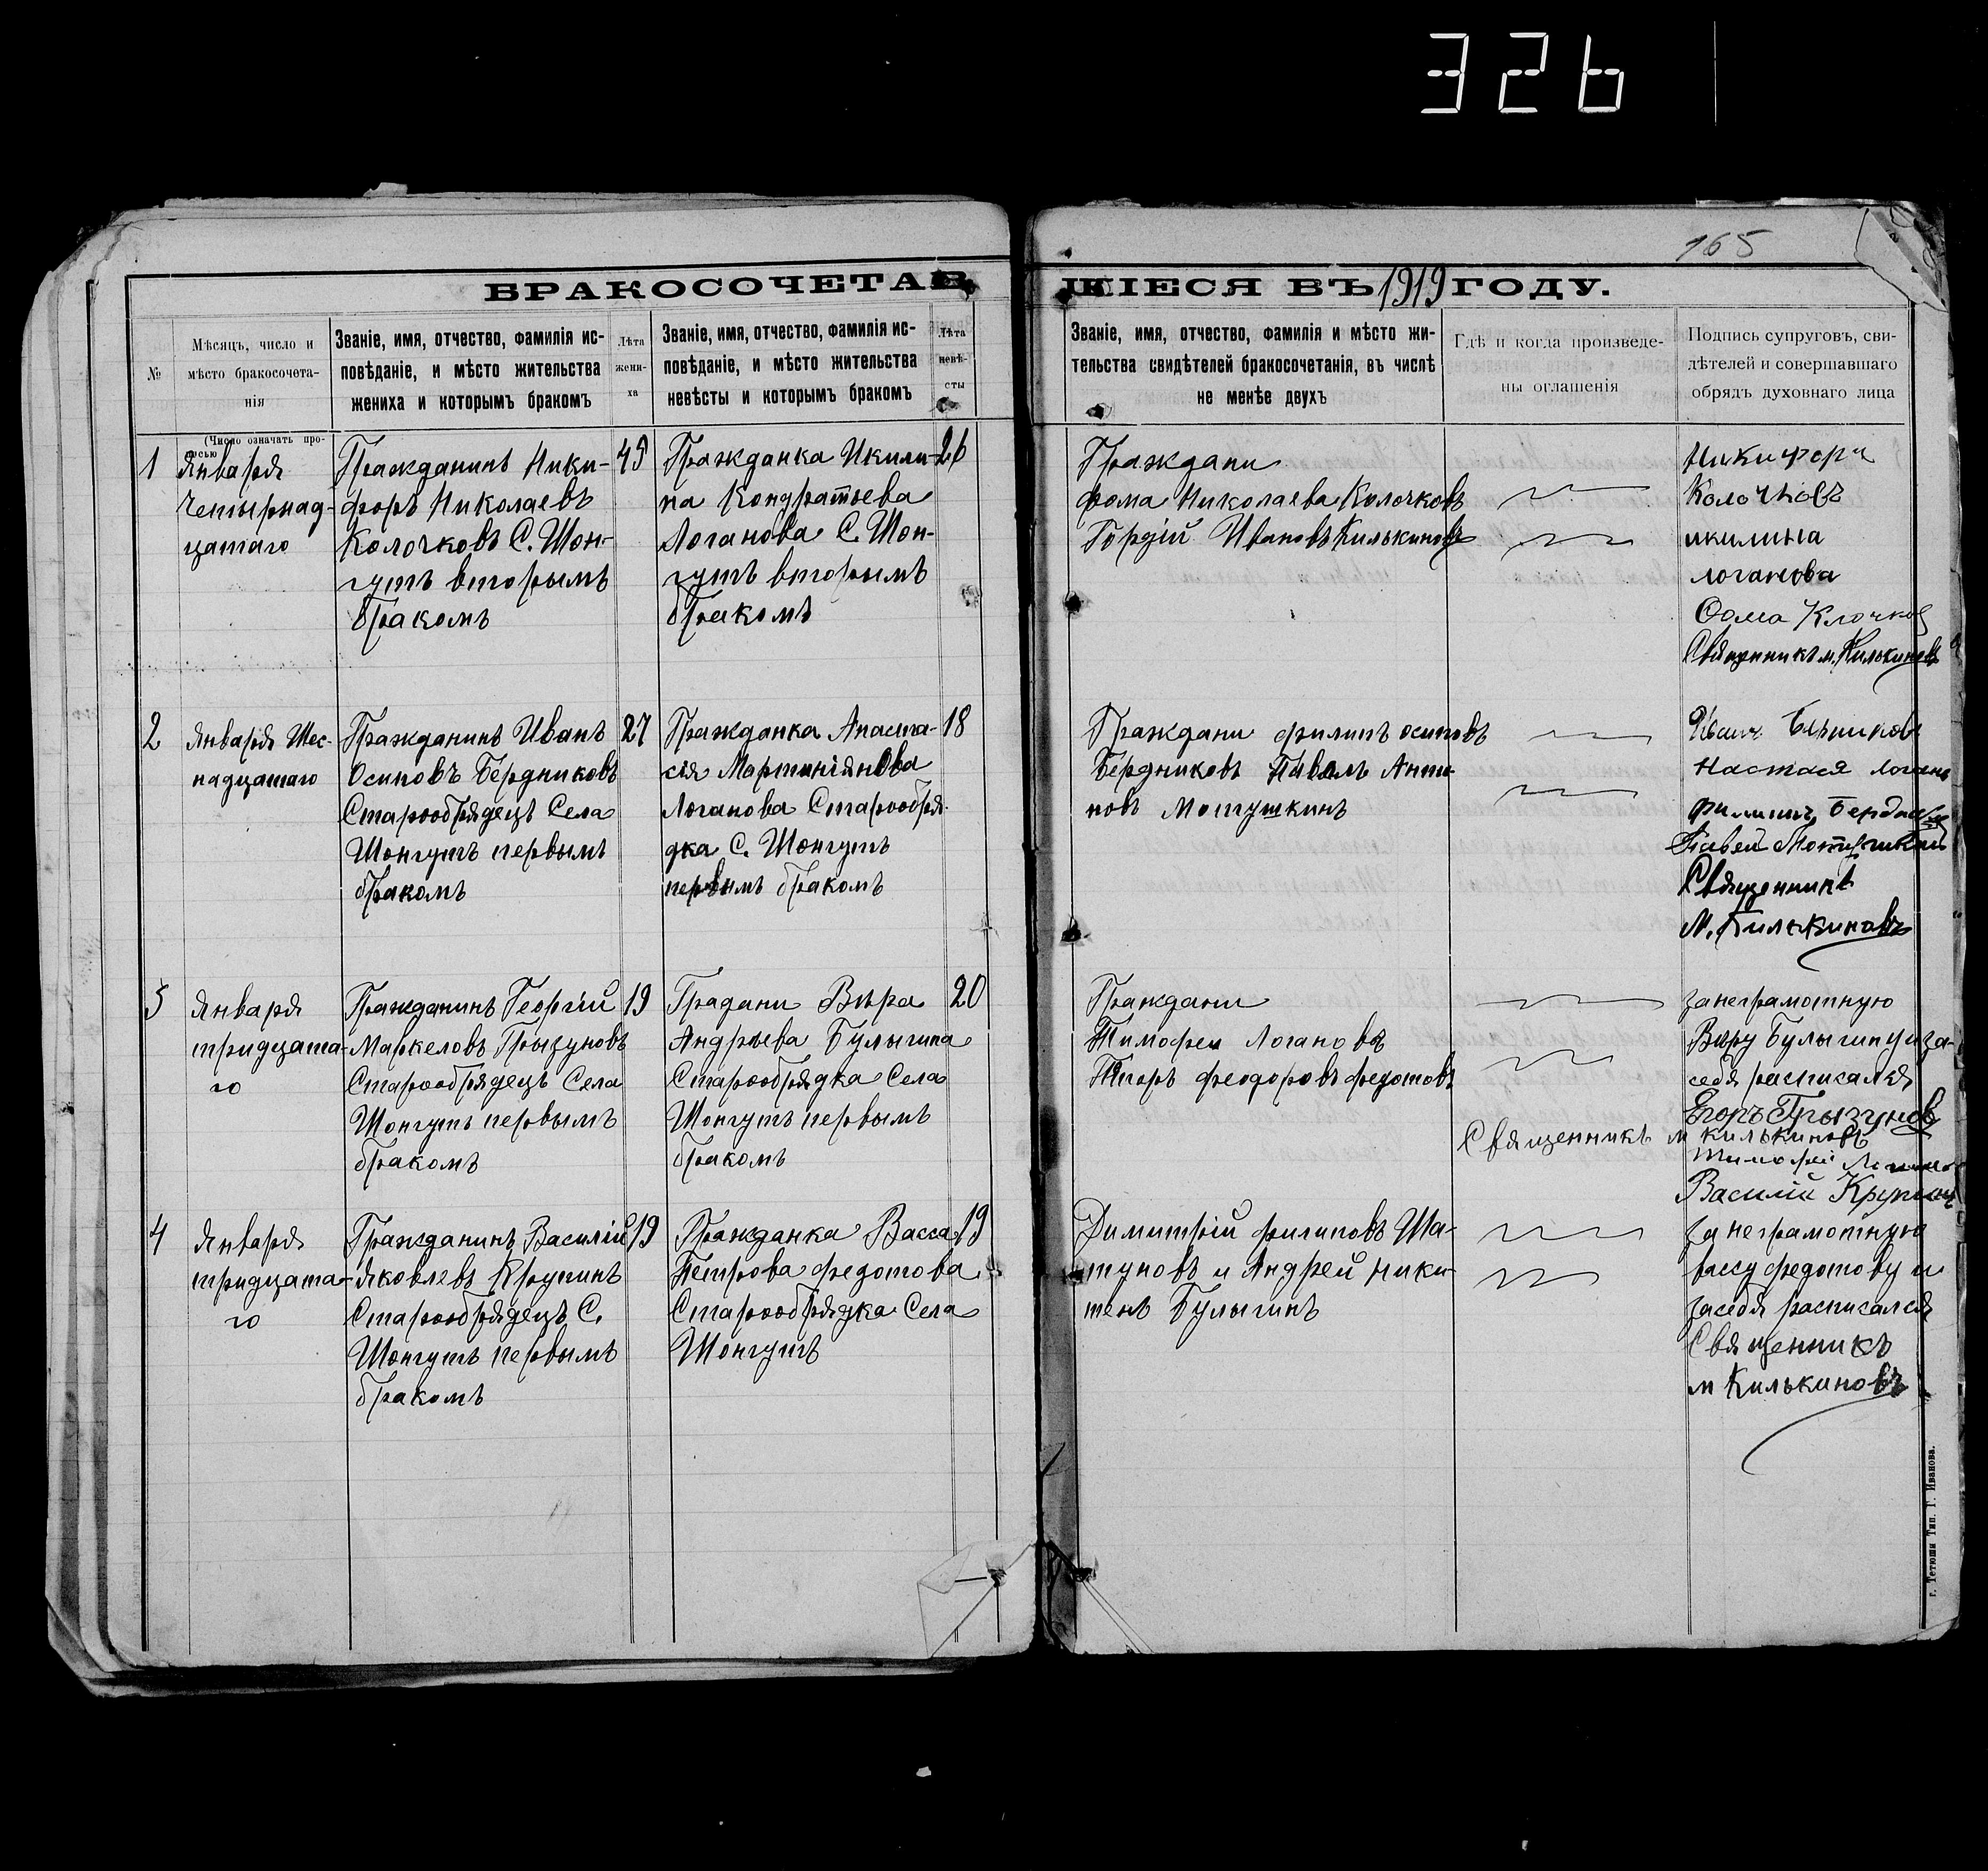 326
165
БРАКОСОЧЕТАВ
ШІЕСЯ ВЪ 1919 ГОДУ.
№
Мѣсяцъ, число и
мѣсто бракосочета-
нія
Званіе, имя, отчество, фамилія ис-
повѣданіе, и мѣсто жительства
жениха и которымъ бракомъ
Лѣта
жени-
ха
Званіе, имя, отчество, фамилія ис-
повѣданіе, и мѣсто жительства
невѣсты и которымъ бракомъ
Лѣта
невѣ-
сты
Званіе, имя, отчество, фамилія и мѣсто жи-
тельства свидѣтелей бракосочетанія, въ числѣ
не менѣе двухъ
Гдѣ и когда произведе-
ны оглашенія
Подпись супруговъ, сви-
дѣтелей и совершавшаго
обрядъ духовнаго лица
(Число означать про-
писью
1
Января
четырнад-
цатаго
Гражданинъ Ники-
форъ Николаевъ
Колочковъ С. Шон-
гутъ вторымъ
бракомъ
45
Гражданка Икили-
на Кондратьева
Логанова С. Шон-
гутъ вторымъ
бракомъ
26
Граждани
фома Николаева Колочковъ
Гордій Ивановъ Килькиновъ
Никифоръ
Колочковъ
икилина
логанова
Фома Клочков
Священникъ м. Килькиновъ
2
Января Шес-
надцатаго
Гражданинъ Иванъ
Осиповъ Бердниковъ
Старообрядецъ Села
Шонгутъ первымъ
бракомъ
27
Гражданка Анаста-
сія Мартиніянова
Логанова Старообря-
дка С. Шонгутъ
первымъ бракомъ
18
Граждани филипъ осиповъ
Бердниковъ Павелъ Анти-
повъ Мотушкинъ
Настася логан
филипъ
Священникъ
М. Килькиновъ
3
Января
тридцата-
го
Гражданинъ Георгій
Маркеловъ Грызуновъ
Старообрядецъ Села
Шонгутъ первымъ
бракомъ
19
Градани Вѣра
Андрѣева Булыгина
Старообрядка Села
Шонгутъ первымъ
бракомъ
20
Граждани
Тимофеи Логановъ
феодоровъ федотовъ
за неграмотную
Вѣру Булыгину и за-
себя расписался
Егоръ Грызунов
Священникъ м килькиновъ
Василій
4
Января
тридцата-
го
Гражданинъ Василій
Яковлевъ Крупинъ
Старообрядецъ С.
Шонгутъ первымъ
бракомъ
19
Гражданка Васса
Петрова федотова
Старообрядка Села
Шонгутъ
19
Димитрій филиповъ Ша-
туновъ и Андрей Ники-
тенъ Булыгинъ
за неграмотную
вассу федотову и
засебя расписался
Священникъ
м Килькиновъ
г. Тетюши Тип. Г. Иванова.